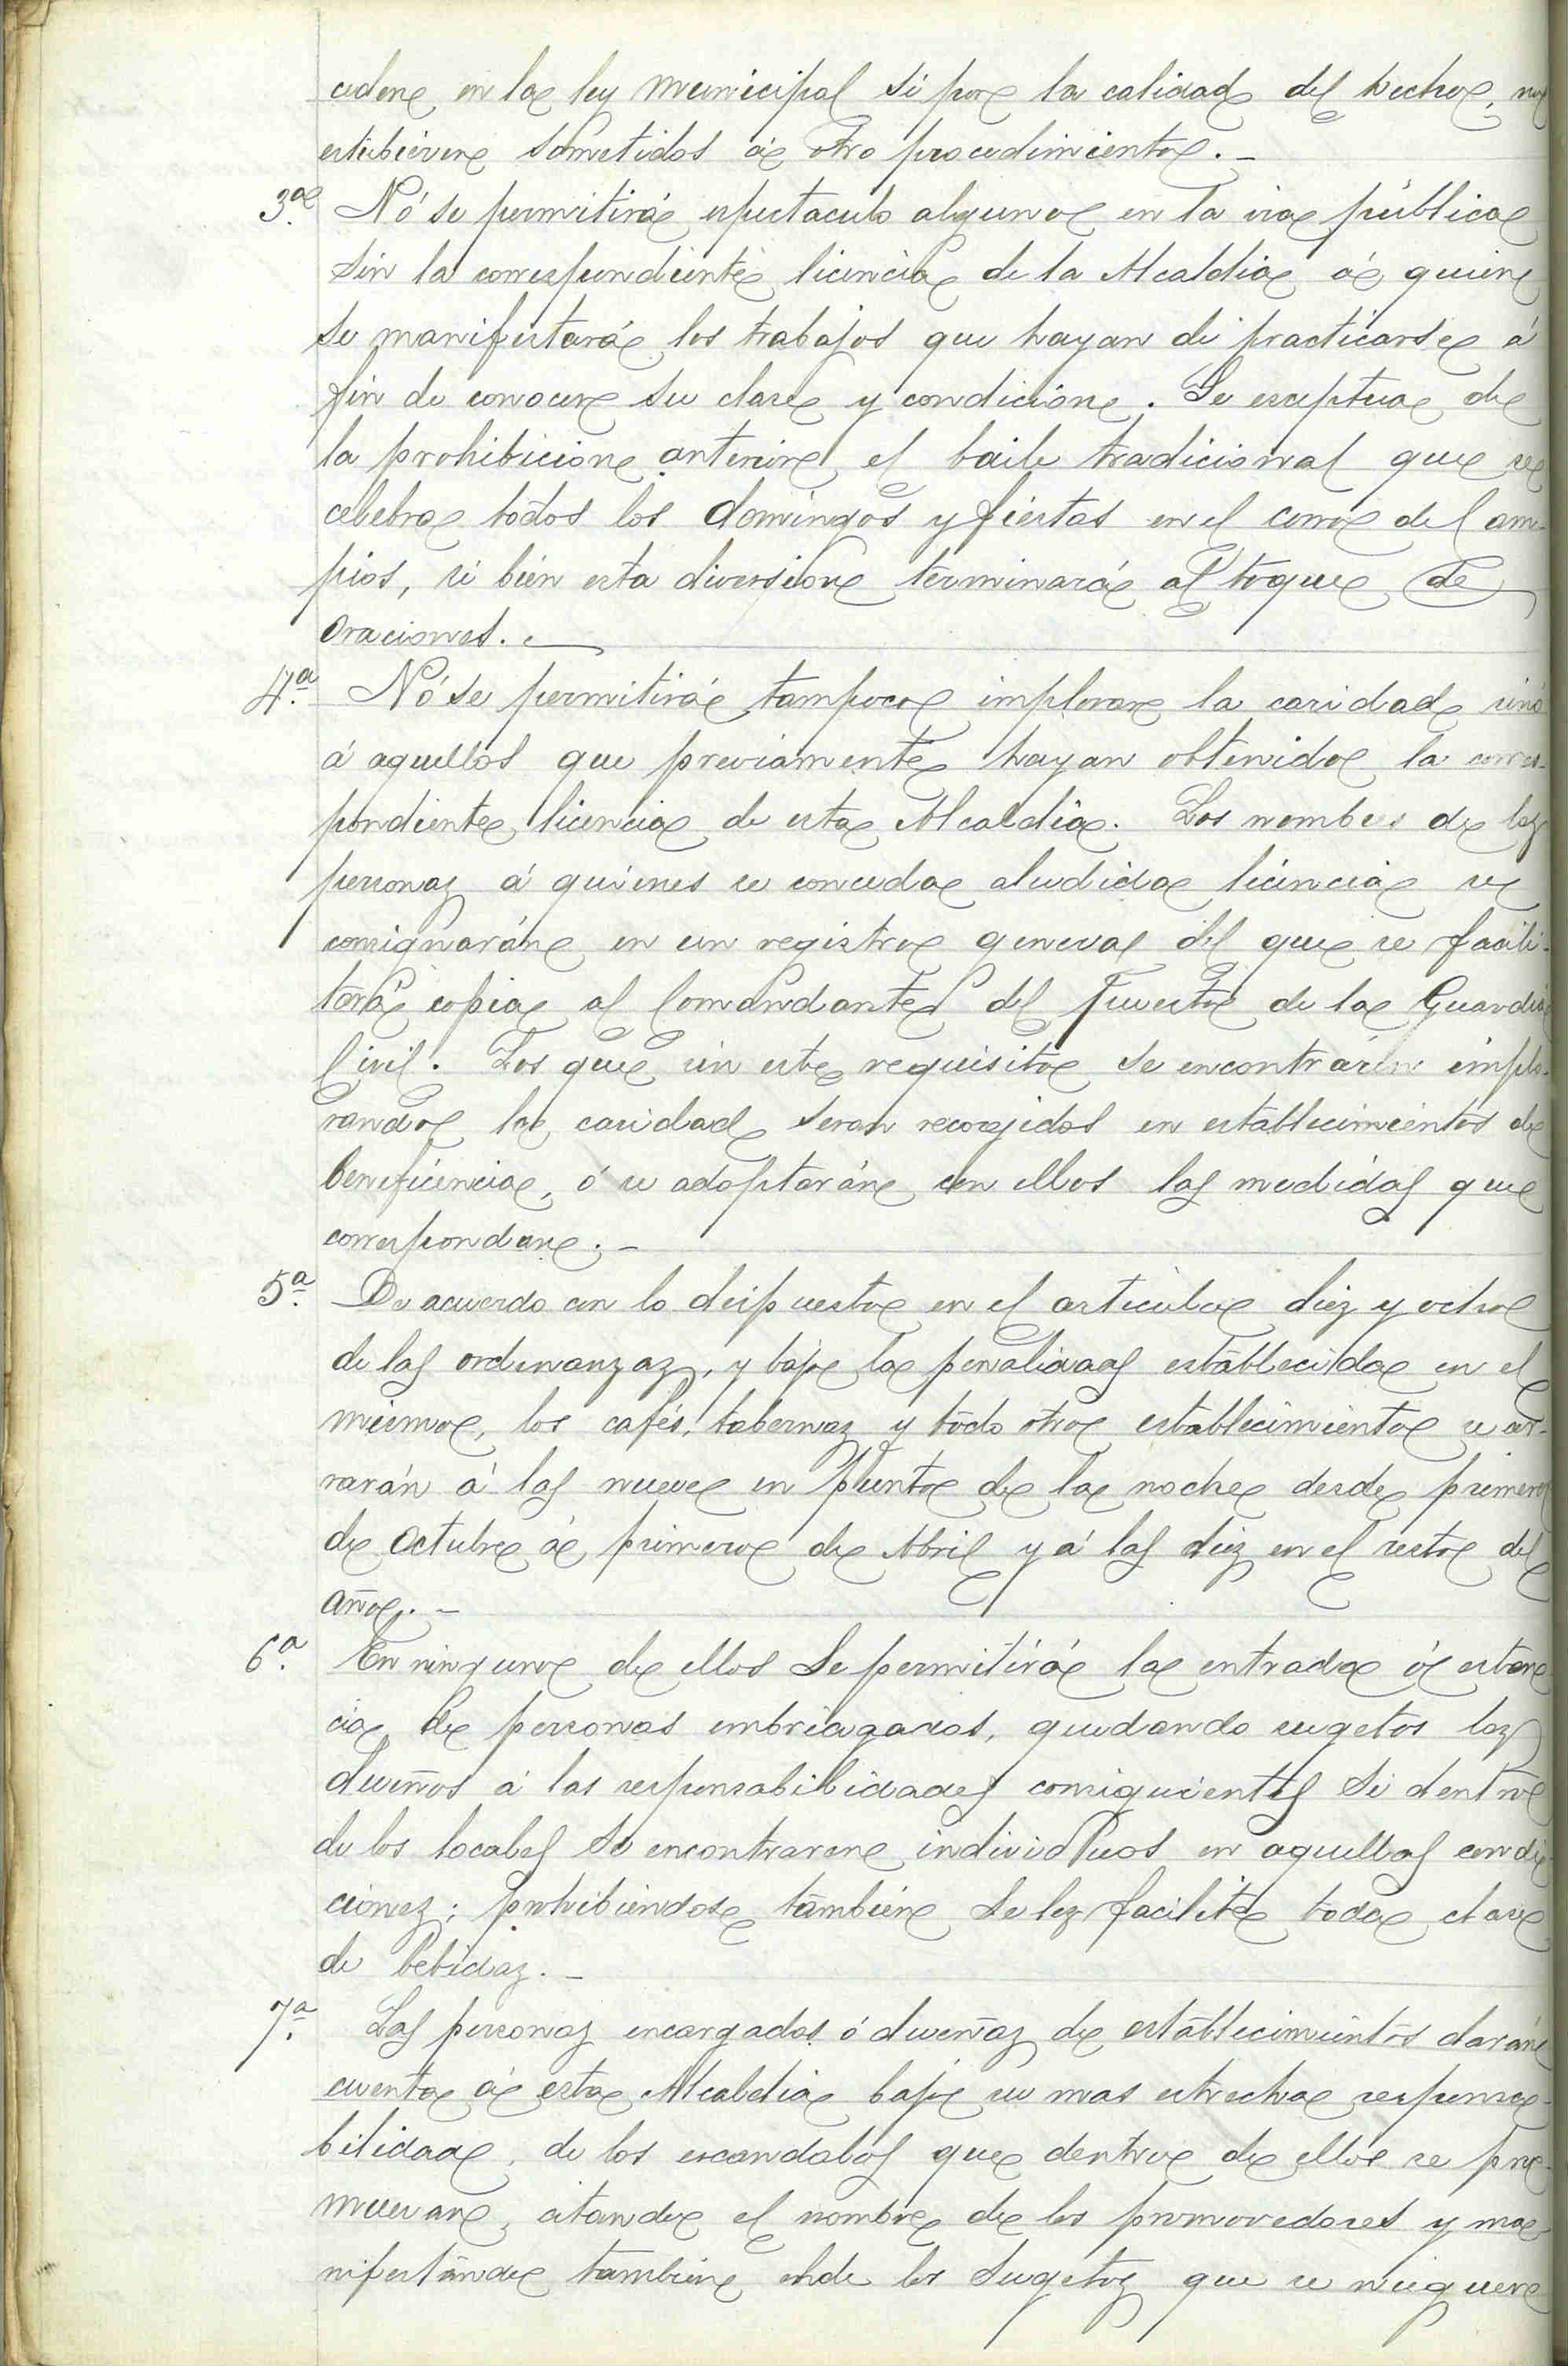 ceden en la ley Municipal si por la calidad del hecho, no
estubieren sometidos á otro procedimiento.-
3ª. Nó se permitirá espectaculo alguno en la via pública
sin la correspondiente licencia de la Alcaldia á quien
se manifestará los trabajos que hayan de practicarse á
fin de conocer su clase y condicion. Se esceptua de
la prohibicion anterior el baile tradicional que se
celebra todos los domingos y fiestas en el corro del am-
pios, si bien esta diversion terminará al toque de
Oraciones.
4ª. Nó se permitirá tampoco implorar la caridad sinó
á aquellos que previamente hayan obtenido la corres-
pondiente licencia de esta Alcaldia. Los nombres de las
personas á quienes se conceda aludida licencia se
consignarán en un registro general del que se facili-
tará copia al Comandante del Puesto de la Guardia
Civil. Los que sin este requisito se encontrasen implo-
rando la caridad seran recogidos en establecimientos de
beneficencia, ó se adoptarán con ellos las medidas que
correspondan.-
5ª. De acuerdo con lo dispuesto en el articulo diez y ocho
de las ordenanzas, y bajo la penalidad establecida en el
mismo, los cafés, tabernas y todo otro establecimiento se cer-
rarán á las nueve en punto de la noche desde primero
de Octubre á primero de Abril y á las diez en el resto del
año.-
6ª. En ninguno de ellos se permitirá la entrada ó estan
cia de personas embriagadas, quedando sugetos los
dueños á las responsabilidades consiguientes si dentro
de los locales se encontraren individuos en aquellas condi
ciones; prohibiendose tambien se les facilite toda clase
de bebidas.-
7ª. Las personas encargadas ó dueñas de establecimientos darán
cuenta á esta Alcaldia bajo su mas estrecha responsa-
bilidad, de los escandalos que dentro de ellos se pro-
muevan, citando el nombre de los promovedores y ma-
nifestando tambien el de los sugetos que se nieguen